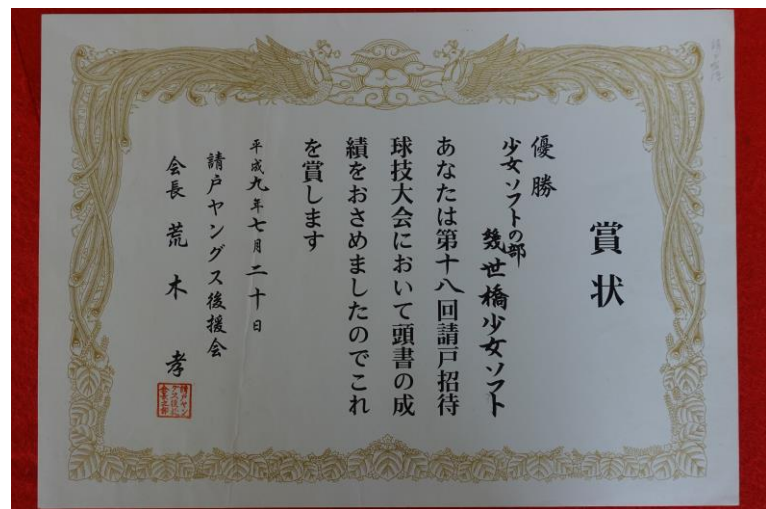 賞状
優勝
少女ソフトの部
幾世橋少女ソフト
あなたは第十八回請戸招待
球技大会において頭書の成
績をおさめましたのでこれ
を賞します
平成九年七月二十日
請戸ヤングス後援会
会長 荒木 孝